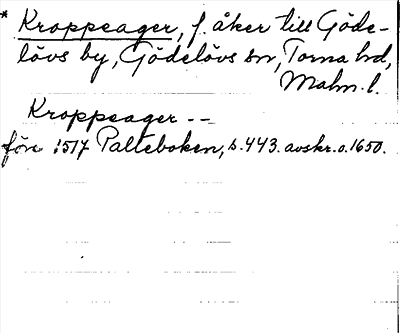 * Kroppeager, f. åker till Göde-
lövs by, Gödelövs sn, Torna hd,
Malm. l.
Kroppeager --
före 1517 Palteboken, s. 443. avskr. o. 1650.